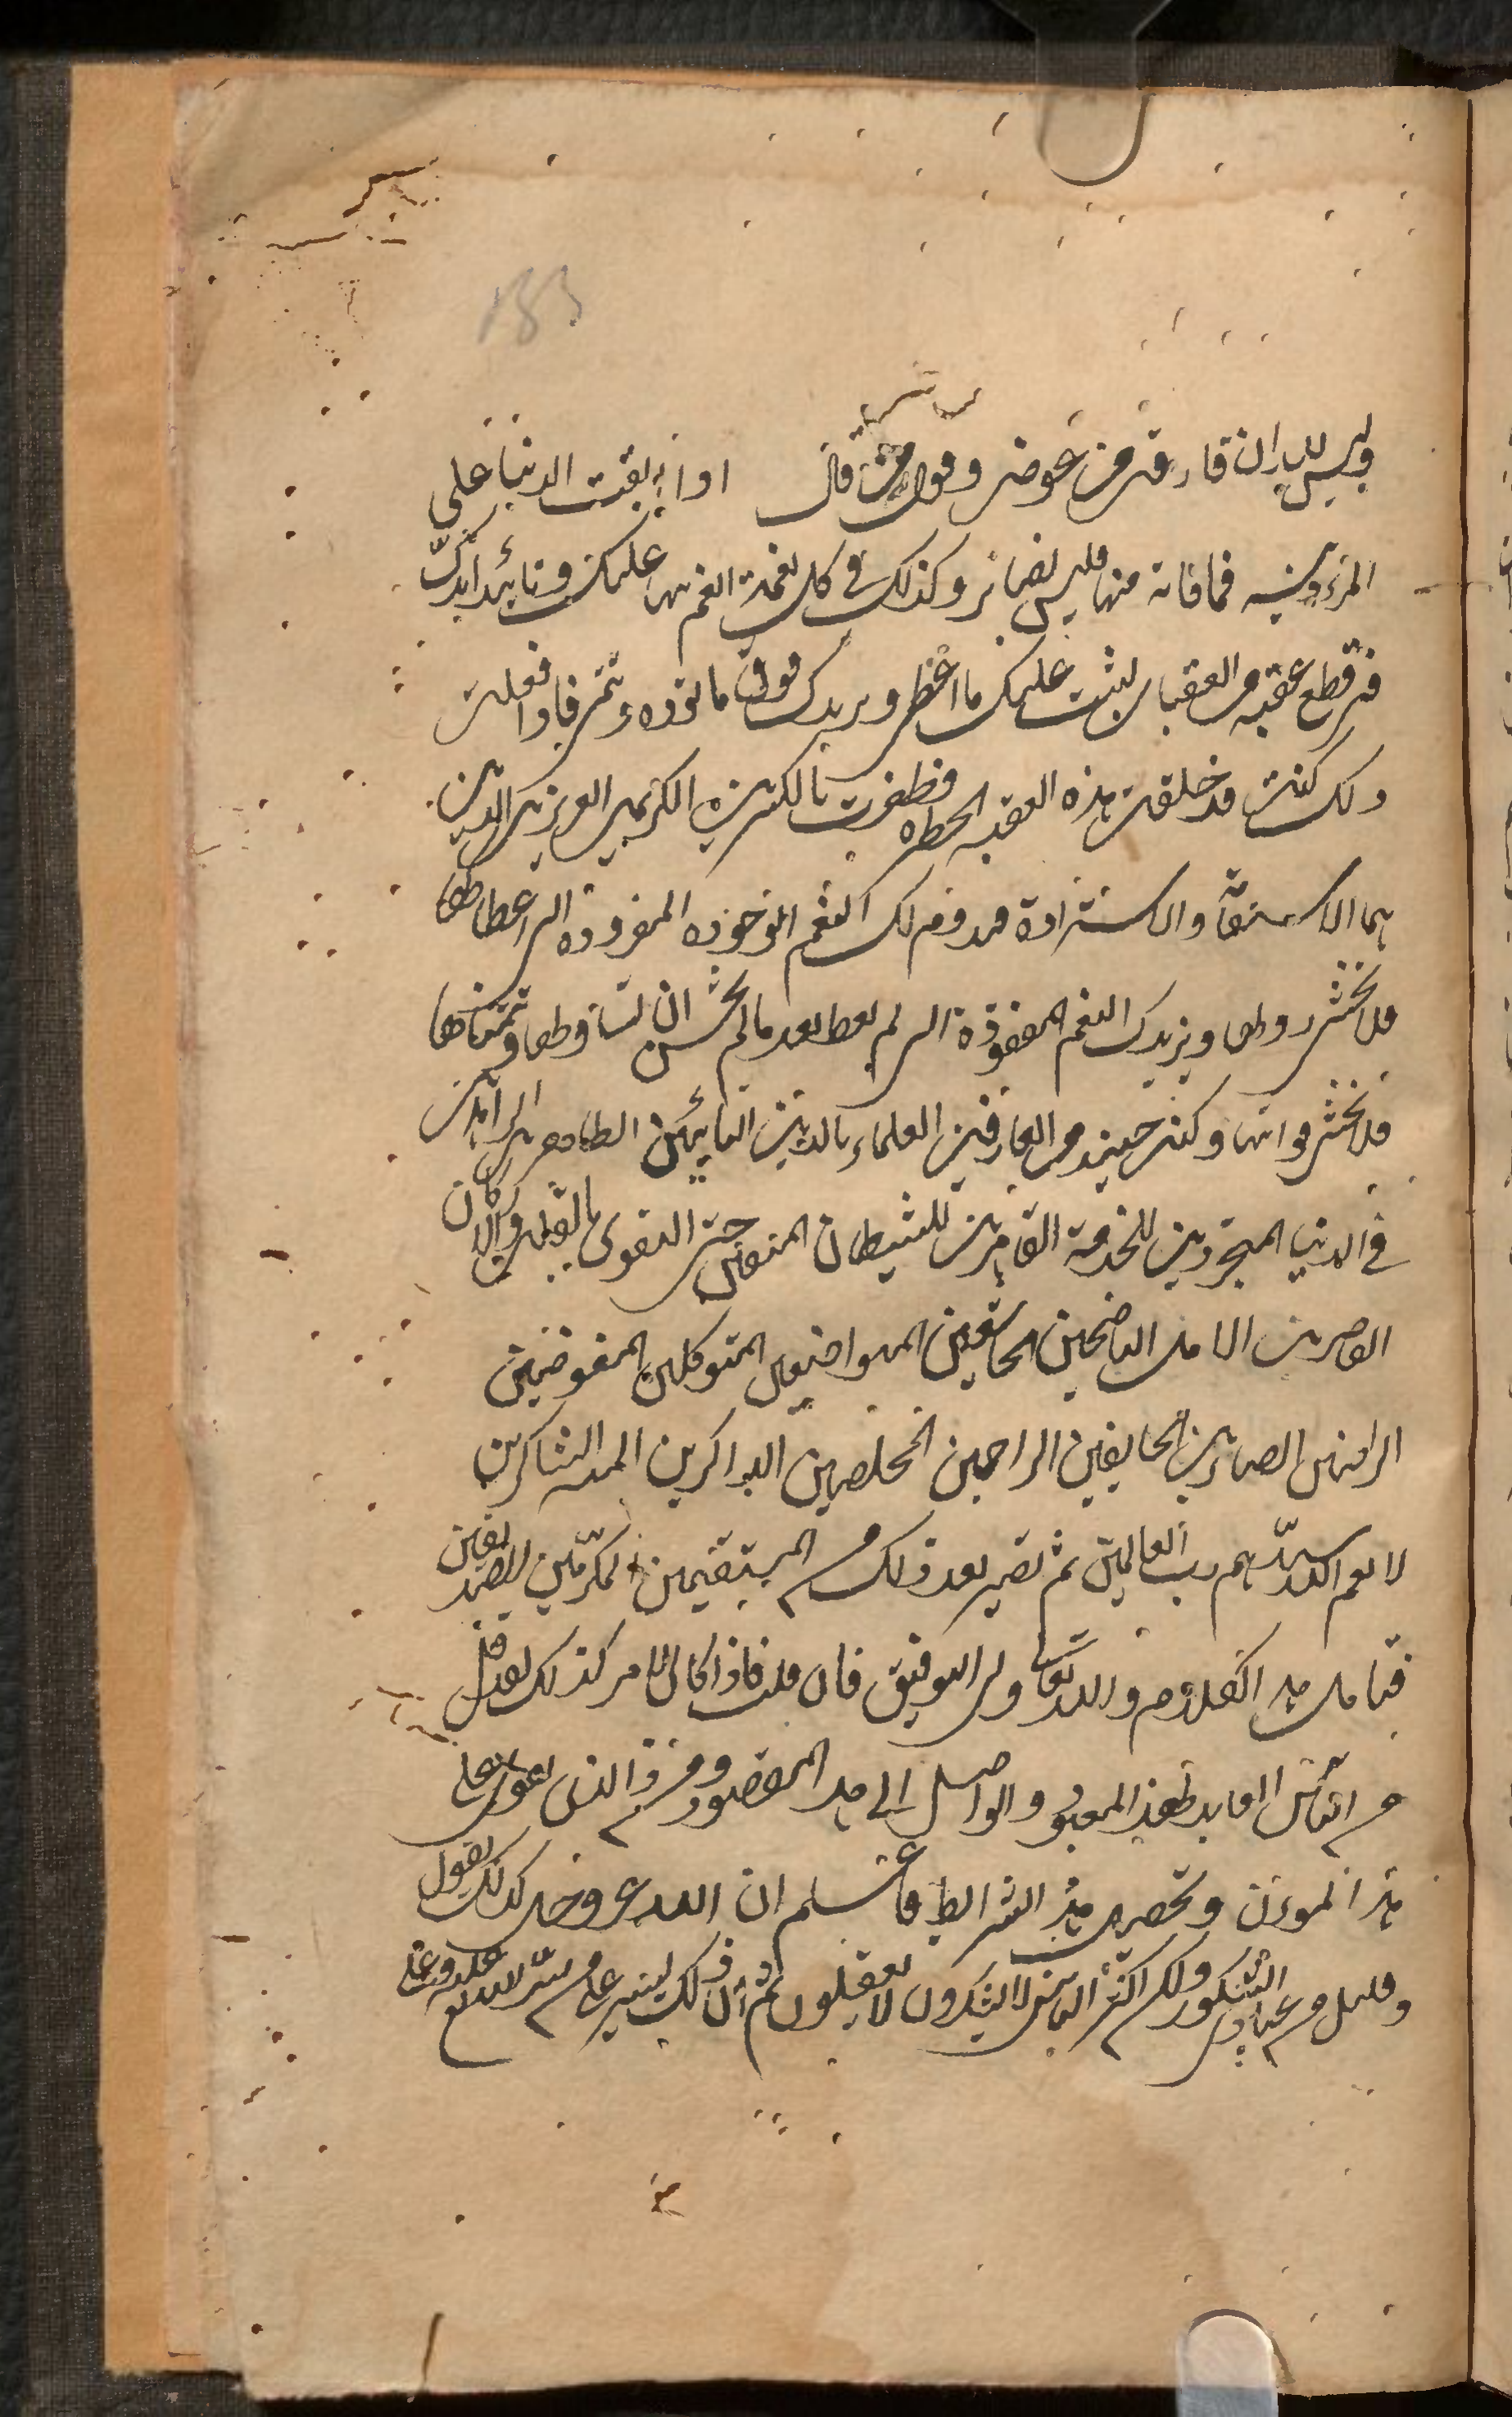 183
وليس لله ان فارقت من عوض وقول من قال اذا ابقت الدنيا على
المرء دينه فما فاته منها فليس بضائر وكذلك في كل نعمة انعم بها عليك وتأييد ايدك
في قطع عقبة من العقبات ليثبت عليك ما اعطى ويزيدك فوق ما توده وتتمنى فاذا فعلت
ذلك كنت قد خلفت هذه العقبة الخطرة فظفرت بالكنزين الكريمين العزيزين الذين
هما الاستقامة والاستزادة فتدوم لك النعم الموجودة التي اعطاكها
فلا تخشى زوالها ويزيدك النعم المفقودة التي لم يعط بعد ما لم تحسن ان تسأل وتتمناها
فلا تخشى فواتها وكنت حينئذ من العارفين العلماء بالدين التائبين الطاهرين الزاهدين
في الدنيا المتجردين للخدمة القاهرين للشيطان المتقين حق التقوى بالقلب والاركان
القاصرين الامل الناصحين الخاشعين المتواضعين المتوكلين المفوضين
الراضين الصابرين الخايفين الراجين المخلصين الذاكرين المنة الشاكرين
لانعم الله سيدهم رب العالمين ثم تصير بعد ذلك من المستقيمين المكرمين الصديقين
فتأمل هذا الكلام والله تعالى ولي التوفيق فان قلت فاذا كان الامر كذلك لقد قل
من الناس العابد لهذا المعبود والواصل الى هذا المقصود ومن ذا الذي يقوى على
هذه المؤن وتحصيل هذه الشرائط فاعلم ان الله عز وجل كذلك يقول
وقليل من عبادي الشكور ولكن اكثر الناس لا يشكرون لا يعقلون ثم ان ذلك يسير على من يسره الله عليه وعلى